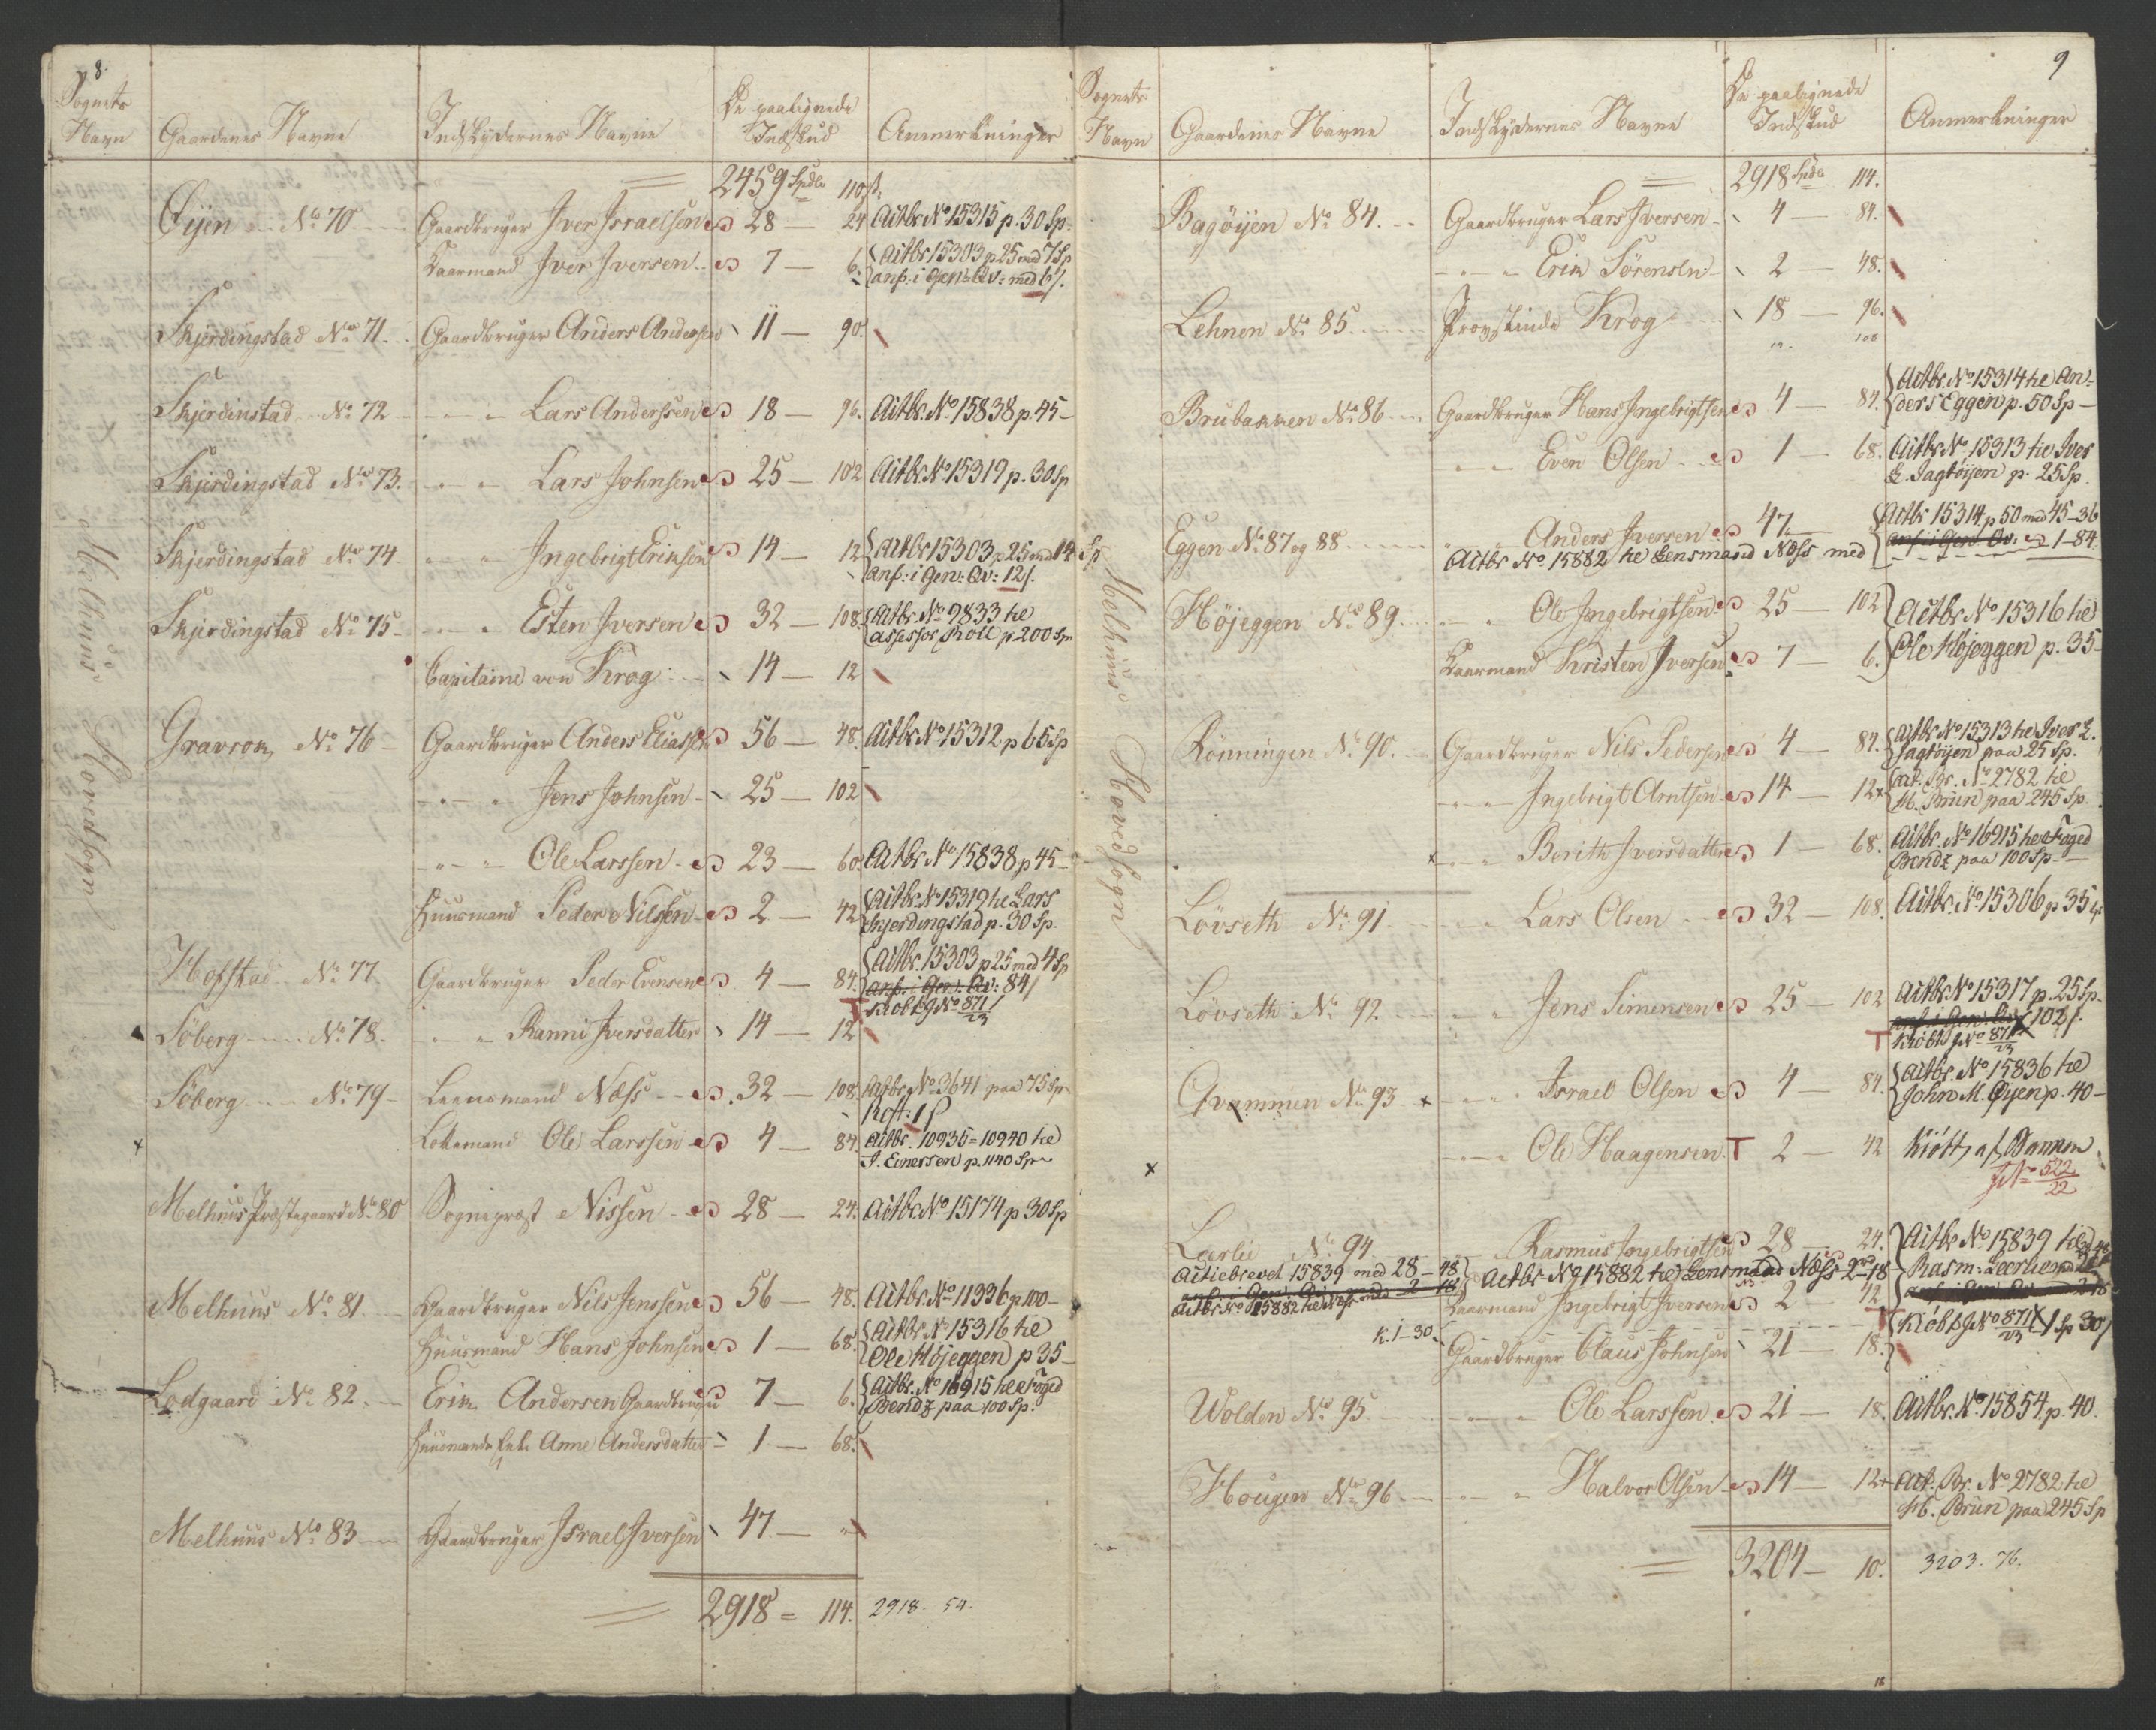 8.
Sognets Navn | Gaardenes Navne | Indskydernes Navne | De paalignede Indskud | Anmerkninger
2459 Spdlr 110 s.
Öijen No 70 Gaardbruger Iver Israelsen 28 — 24 Actbr. No 15315 p. 30 Sp.
Kaarmand Iver Iversen 7 — 6. Actbr 15303 p 25 med 7 Sp
anf: i Gen: Qv: med 6 s.
Skjerdingstad No 71. Gaardbruger Anders Andersen 11 — 90.
Skjerdinstad No 72 Lars Anderssen 18 — 96. Actbr. No 15838 p. 45 —
Skjerdingstad No 73. Lars Johnsen 25 — 102 Actbr. No 15319 p. 30 Sp
Skjerdingstad No 74. Ingebrigt Eriksen 14 — 12 Actbr 15303 p 25 med 14 Sp
anf: i Gen: Qv: 12 s.
Skjerdingstad No 75 Esten Iversen 32 — 108 Actbr. No 9833 til
assessor Roll p 200 Sp
Capitaine von Krog 14 — 12
Gravrok No 76 Gaardbruger Anders Eliassen 56 — 48. Actbr. No 15312 p 65 Sp
Jens Johnsen 25 — 102
Ole Larssen 23 — 60. Actbr. No 15838 p 45 —
Huusmand Peder Nilssen 2 — 42 Actbr. No 15319 til Lars
Skjerdingstad p. 30 Sp.
Melhuus Hovedsogn
Hofstad No 77 Gaardbruger Peder Evensen 4 — 84. Actbr. 15303 p 25 med 4 Sp
anf: i Gen: Qv: 84 s
T Kiobt J No 871/23
Söberg No 78. Ranni Iversdatter 14 — 12
Söberg No 79 Leensmand Næss 32 — 108. Actbr. No 3641 paa 75 Sp
Rest: 1 s
Lottemand Ole Larssen 4 — 84. Actbr. 10935 = 10940 til
J. Einersen p. 1140 Sp
Melhuus Præstegaard No 80 Sogneprest Nissen 28 — 24. Actbr. No 15174 p 30 Sp
Melhuus No 81. Gaardbruger Nils Jenssen 56 — 48. Actbr. No 11336 p 100 —
Huusmand Hans Johnsen 1 — 68. Actbr. No 15316 til
Ole Höjeggen p 35 —
Lodgaard No 82. Erik Andersen Gaardbruger 7 — 6. Actbr. No 16915 til Foged
Bendz paa 100 Sp.
Huusmands Enke Anne Andersdatter 1 — 68.
Melhuus No 83 Gaardbruger Israel Iversen 47 — "
2918 = 114. 2918. 54.
9
Sognets Navn | Gaardenes Navne | Indskydernes Navne | De paalignede Indskud | Anmerkninger
2918 Spdlr 114.
Bagöijen No 84. Gaardbruger Lars Iversen 4 — 84.
Erik Sörensen 2 — 48.
Lehnen No 85. Provstinde Krog 18 — 96.
Brubakken No 86 Gaardbruger Hans Ingebrigtsen 4 — 84. Actbr. No 15314 til An-
ders Eggen p. 50 Sp —
Even Olsen 1 — 68. Actbr No 15313 til Iver
L. Jagtöijen p. 25 Sp.
Eggen No 87 og 88. Anders Iversen 47 — Actbr 15314 p 50 med 45 - 36
anf i Gen Qv. 1 - 84
Actbr No 15882 til Lensmand Næss med
Melhuus Hovedsogn
Höjeggen No 89. Ole Ingebrigtsen 25 — 102 Actbr. No 15316 til
Kaarmand Kristen Iversen 7 — 6. Ole Höjeggen p. 35 —
Rönningen No 90. Gaardbruger Nils Pedersen 4 — 84. Actbr No 15313 til Iver L.
Jagtöijen paa 25 Sp.
Ingebrigt Arntsen 14 — 12 Act. Br. No 2782 til
M. Brun paa 245 Sp.
x Berith Iversdatter 1 — 68. Actbr. No 16915 til Foged
Bendz paa 100 Sp —
Lövseth No 91 Lars Olsen 32 — 108. Actbr. No 15306 p 35 Sp
Lövseth No 92. Jens Simensen 25 — 102 Actbr. No 15317 p. 25 Sp.
anf i Gen: Qv 102 s.
T Kiöbt J No 871/23
Qvammen No 93 x Israel Olsen 4 — 84. Actbr. No 15836 til
John M. Öyen p. 40 —
x Ole Haagensen T 2 — 42 Kiött af
J No 522/22
Leerlie No 94 Rasmus Ingebrigtsen 28 — 24. Actbr No 15839 til
Actiebrevet 15839 med 28 - 48 Actbr No 15882 til Lensmand Næss 2 - 18 Rasm: Leerlie
Actbr No 15882 til Næss med 2 - 18 Kaarmand Ingebrigt Iversen 2 — 42
K. 1 - 30 T Kiöbt J No 871/23 1 Sp 30 s
Gaardbruger Claus Johnsen 21 — 18.
Wolden No 95 Ole Larssen 21 — 18. Actbr. No 15854 p. 40.
Hougen No 96 Halvor Olsen 14 — 12 Act. Br. No 2782 til
M. Brun paa 245 Sp
3204 — 10. 3203. 76.